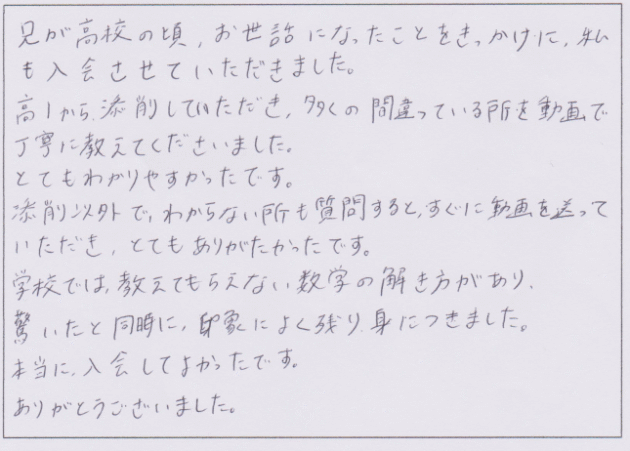 兄が高校の頃、お世話になったことをきっかけに、私
も入会させていただきました。
高1から、添削していただき、多くの間違っている所を動画で
丁寧に教えてくださいました。
とてもわかりやすかったです。
添削以外で、わからない所も質問すると、すぐに動画を送って
いただき、とてもありがたかったです。
学校では、教えてもらえない数学の解き方があり、
驚いたと同時に、印象によく残り、身につきました。
本当に、入会してよかったです。
ありがとうございました。